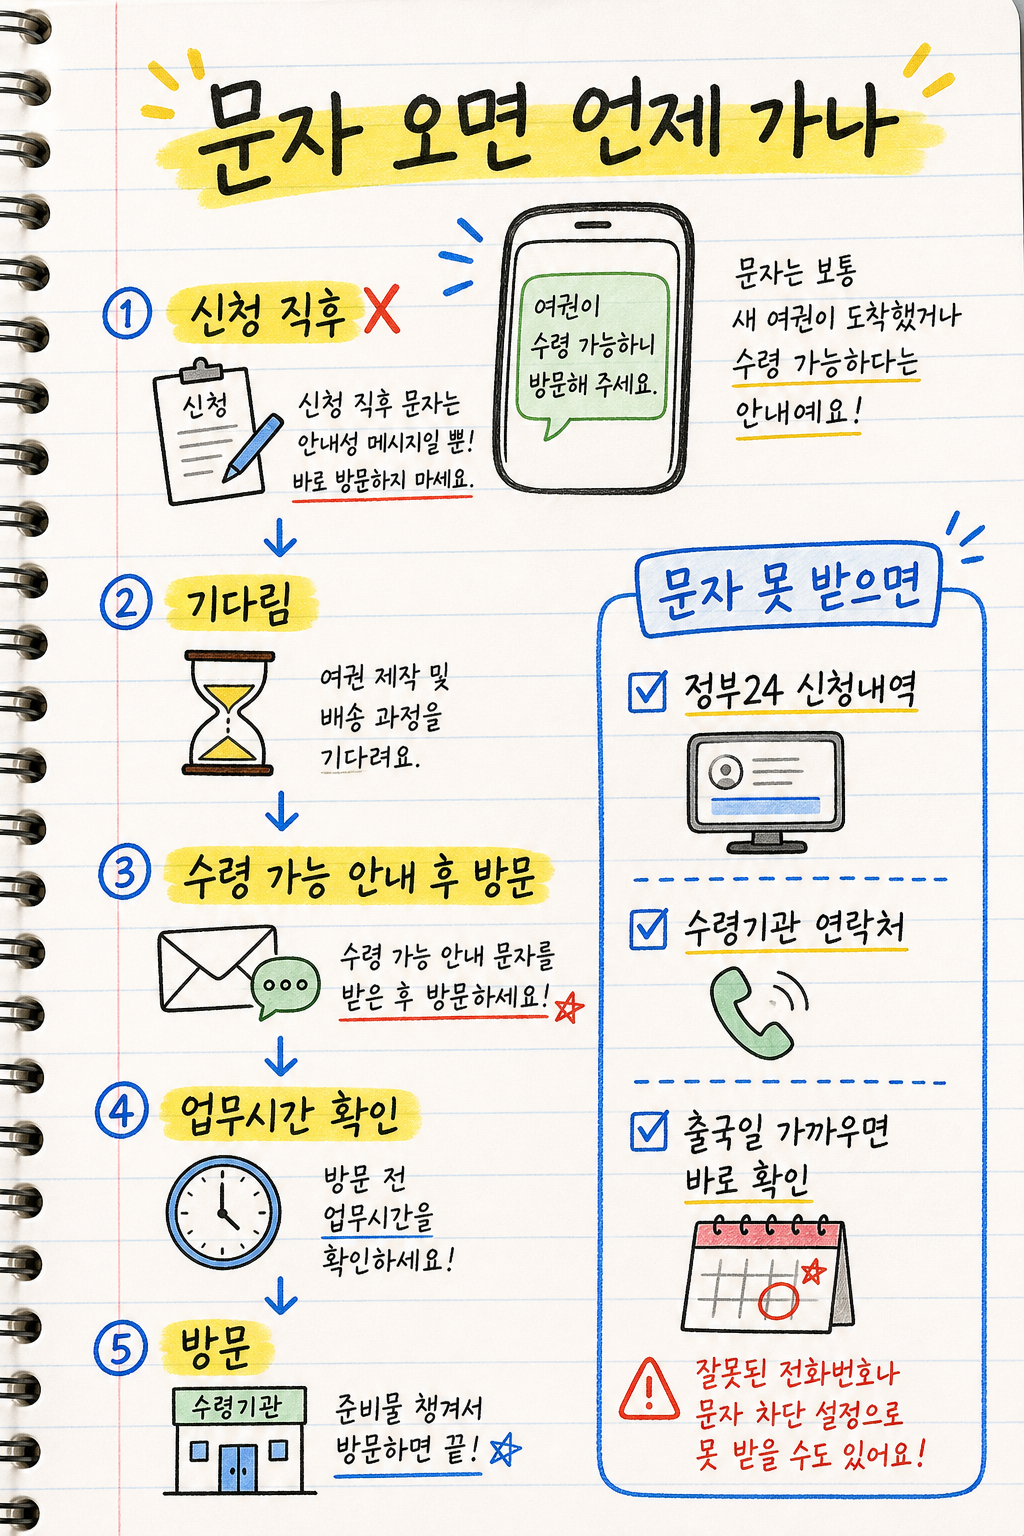 문자 오면 언제 가나
① 신청 직후 X
신청
신청 직후 문자는
안내성 메시지일 뿐!
바로 방문하지 마세요.
여권이
수령 가능하니
방문해 주세요.
문자는 보통
새 여권이 도착했거나
수령 가능하다는
안내예요!
② 기다림
여권 제작 및
배송 과정을
기다려요.
③ 수령 가능 안내 후 방문
수령 가능 안내 문자를
받은 후 방문하세요!
④ 업무시간 확인
방문 전
업무시간을
확인하세요!
⑤ 방문
수령기관
준비물 챙겨서
방문하면 끝!
문자 못 받으면
정부24 신청내역
수령기관 연락처
출국일 가까우면
바로 확인
잘못된 전화번호나
문자 차단 설정으로
못 받을 수도 있어요!